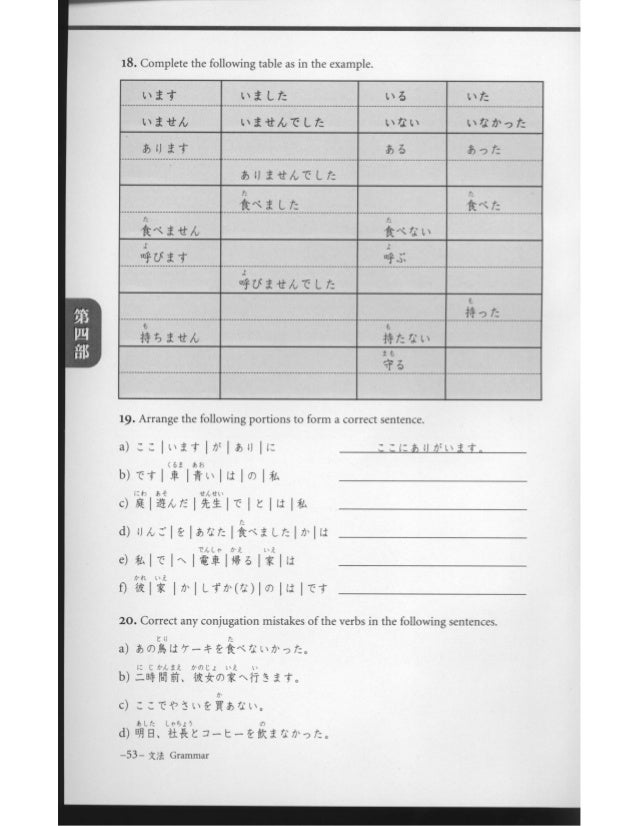 18. Complete the following table as in the example.
います いました いる いた
いません いませんでした いない いなかった
あります ある あった
ありませんでした
食べました 食べた
食べません 食べない
呼びます 呼ぶ
呼びませんでした
持った
持ちません 持たない
守る
第四部
19. Arrange the following portions to form a correct sentence.
a) ここ | います | が | あり | に ここにありがいます。
b) です | 車 | 青い | は | の | 私
c) 庭 | 遊んだ | 先生 | で | と | は | 私
d) りんご | を | あなた | 食べました | か | は
e) 私 | で | へ | 電車 | 帰る | 家 | は
f) 彼 | 家 | か | しずか(な) | の | は | です
20. Correct any conjugation mistakes of the verbs in the following sentences.
a) あの鳥はケーキを食べないかった。
b) 二時間前、彼女の家へ行きます。
c) ここでやさいを買あない。
d) 明日、社長とコーヒーを飲まなかった。
–53– 文法 Grammar